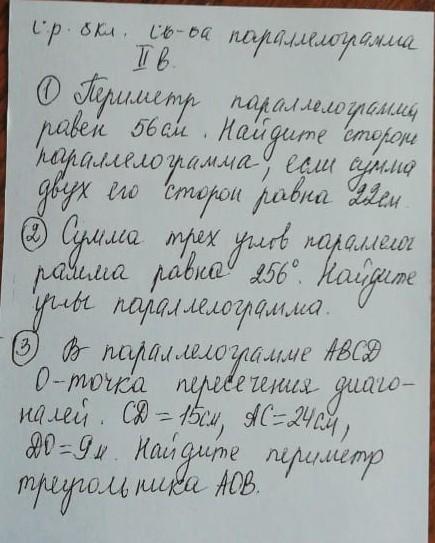 с.р. 8кл. св-ва параллелограмма
II в.
① Периметр параллелограмма
равен 56см. Найдите сторонe
параллелограмма, если сумма
двух его сторон равна 22см.
② Сумма трех углов параллелог
рамма равна 256°. Найдите
углы параллелограмма.
③ В параллелограмме ABCD
О-точка пересечения диаго-
налей. CD = 15см, AC = 24см,
DO = 9м. Найдите периметр
треугольника AOB.